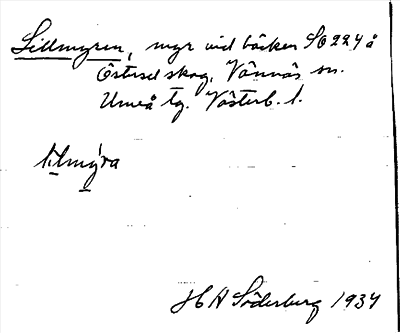 Lillmyren, myr vid bäcken SO 224 å
Östvsel skog, Vännäs sn.
Umeå tg. Västerb. l.
lilmy̍ra
H A Söderberg 1934